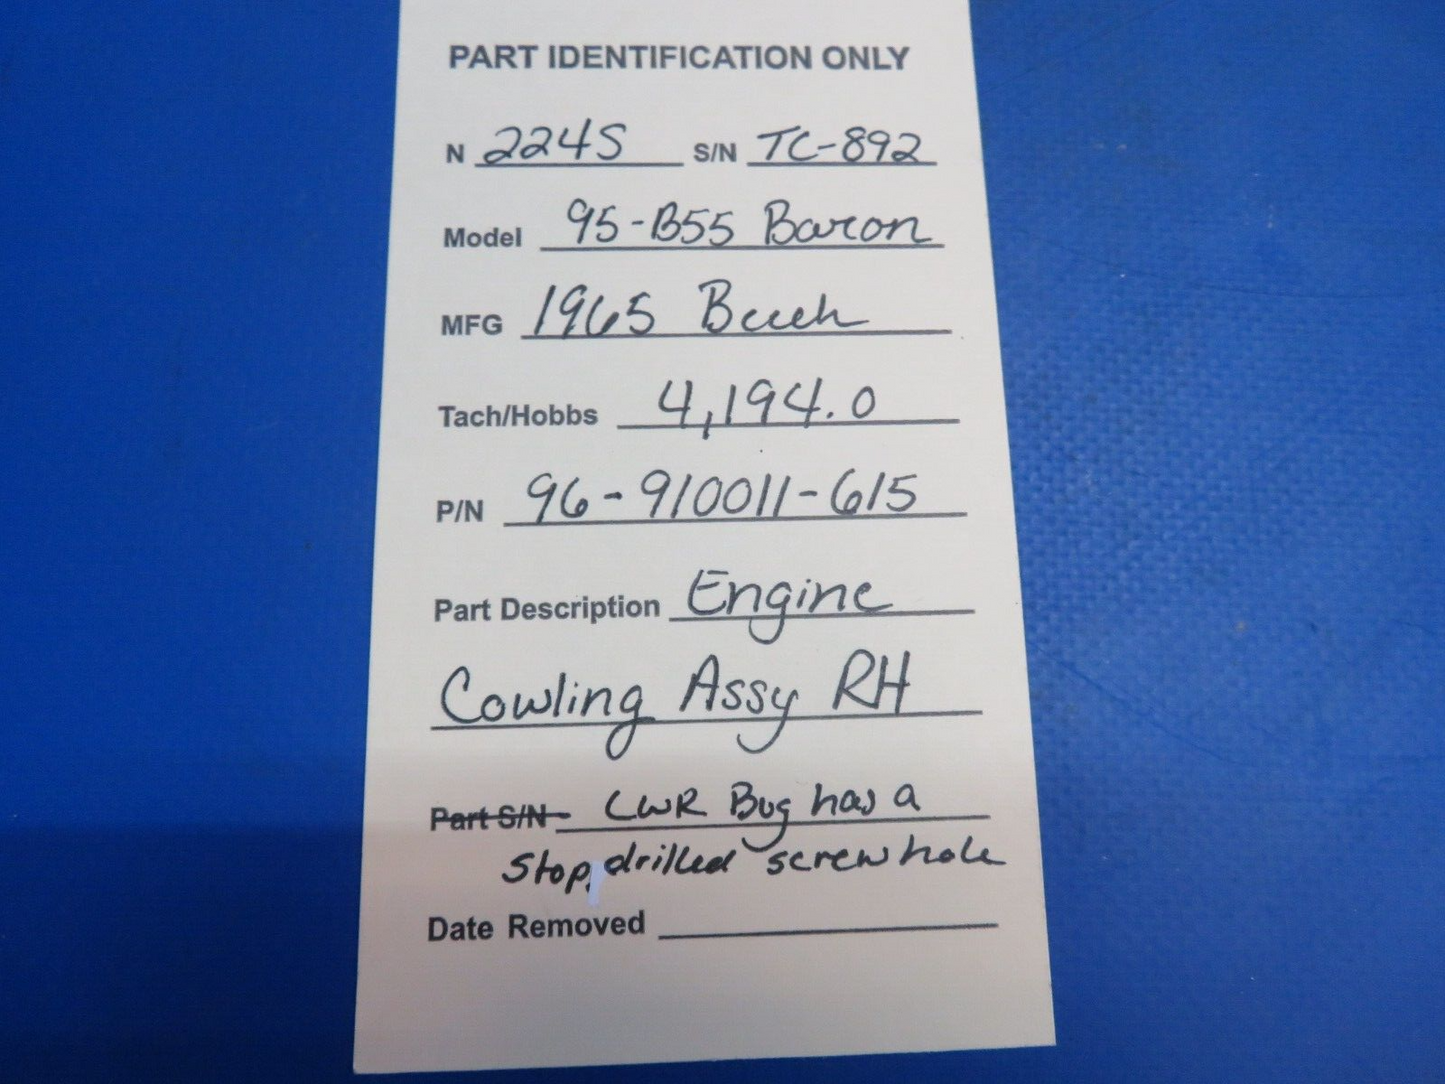 PART IDENTIFICATION ONLY
N 224S S/N TC-892
Model 95-B55 Baron
MFG 1965 Beech
Tach/Hobbs 4,194.0
P/N 96-910011-615
Part Description Engine
Cowling Assy RH
Part S/N LWR Bug has a
Stop drilled screw hole
Date Removed